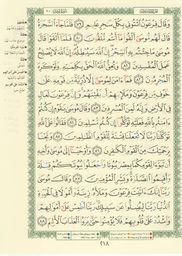 وَقَالَ فِرْعَوْنُ ٱئْتُونِي بِكُلِّ سَٰحِرٍ عَلِيمٍ ٧٩ فَلَمَّا جَآءَ ٱلسَّحَرَةُ
قَالَ لَهُم مُّوسَىٰٓ أَلْقُوا۟ مَآ أَنتُم مُّلْقُونَ ٨٠ فَلَمَّآ أَلْقَوْا۟ قَالَ
مُوسَىٰ مَا جِئْتُم بِهِ ٱلسِّحْرُ إِنَّ ٱللَّهَ سَيُبْطِلُهُۥٓ إِنَّ ٱللَّهَ لَا يُصْلِحُ
عَمَلَ ٱلْمُفْسِدِينَ ٨١ وَيُحِقُّ ٱللَّهُ ٱلْحَقَّ بِكَلِمَٰتِهِۦ وَلَوْ كَرِهَ
ٱلْمُجْرِمُونَ ٨٢ فَمَآ ءَامَنَ لِمُوسَىٰٓ إِلَّا ذُرِّيَّةٌ مِّن قَوْمِهِۦ عَلَىٰ
خَوْفٍ مِّن فِرْعَوْنَ وَمَلَإِي۟هِمْ أَن يَفْتِنَهُمْ وَإِنَّ فِرْعَوْنَ لَعَالٍ
فِي ٱلْأَرْضِ وَإِنَّهُۥ لَمِنَ ٱلْمُسْرِفِينَ ٨٣ وَقَالَ مُوسَىٰ يَٰقَوْمِ إِن كُنتُمْ
ءَامَنتُم بِٱللَّهِ فَعَلَيْهِ تَوَكَّلُوٓا۟ إِن كُنتُم مُّسْلِمِينَ ٨٤ فَقَالُوا۟
عَلَى ٱللَّهِ تَوَكَّلْنَا رَبَّنَا لَا تَجْعَلْنَا فِتْنَةً لِّلْقَوْمِ ٱلظَّٰلِمِينَ ٨٥
وَنَجِّنَا بِرَحْمَتِكَ مِنَ ٱلْقَوْمِ ٱلْكَٰفِرِينَ ٨٦ وَأَوْحَيْنَآ إِلَىٰ مُوسَىٰ
وَأَخِيهِ أَن تَبَوَّءَا لِقَوْمِكُمَا بِمِصْرَ بُيُوتًا وَٱجْعَلُوا۟ بُيُوتَكُمْ قِبْلَةً
وَأَقِيمُوا۟ ٱلصَّلَوٰةَ وَبَشِّرِ ٱلْمُؤْمِنِينَ ٨٧ وَقَالَ مُوسَىٰ
رَبَّنَآ إِنَّكَ ءَاتَيْتَ فِرْعَوْنَ وَمَلَأَهُۥ زِينَةً وَأَمْوَٰلًا فِي ٱلْحَيَوٰةِ
ٱلدُّنْيَا رَبَّنَا لِيُضِلُّوا۟ عَن سَبِيلِكَ رَبَّنَا ٱطْمِسْ عَلَىٰٓ أَمْوَٰلِهِمْ
وَٱشْدُدْ عَلَىٰ قُلُوبِهِمْ فَلَا يُؤْمِنُوا۟ حَتَّىٰ يَرَوُا۟ ٱلْعَذَابَ ٱلْأَلِيمَ ٨٨
٢١٨